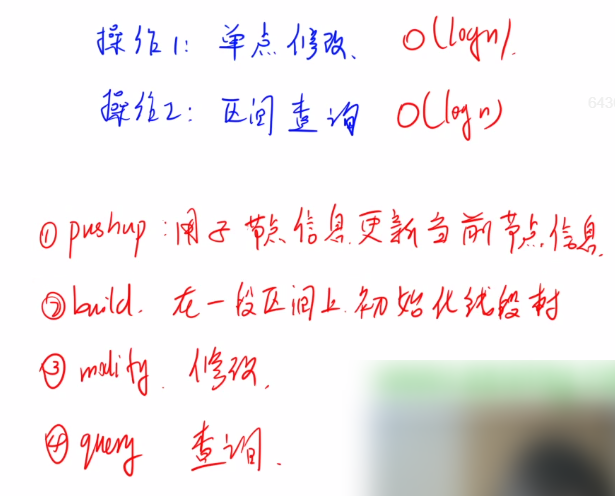 操作1: 单点修改、 O(logn).
操作2: 区间查询 O(logn)
643
① pushup: 用子节点信息更新当前节点信息.
② build. 在一段区间上初始化线段树
③ modify. 修改.
④ query 查询.